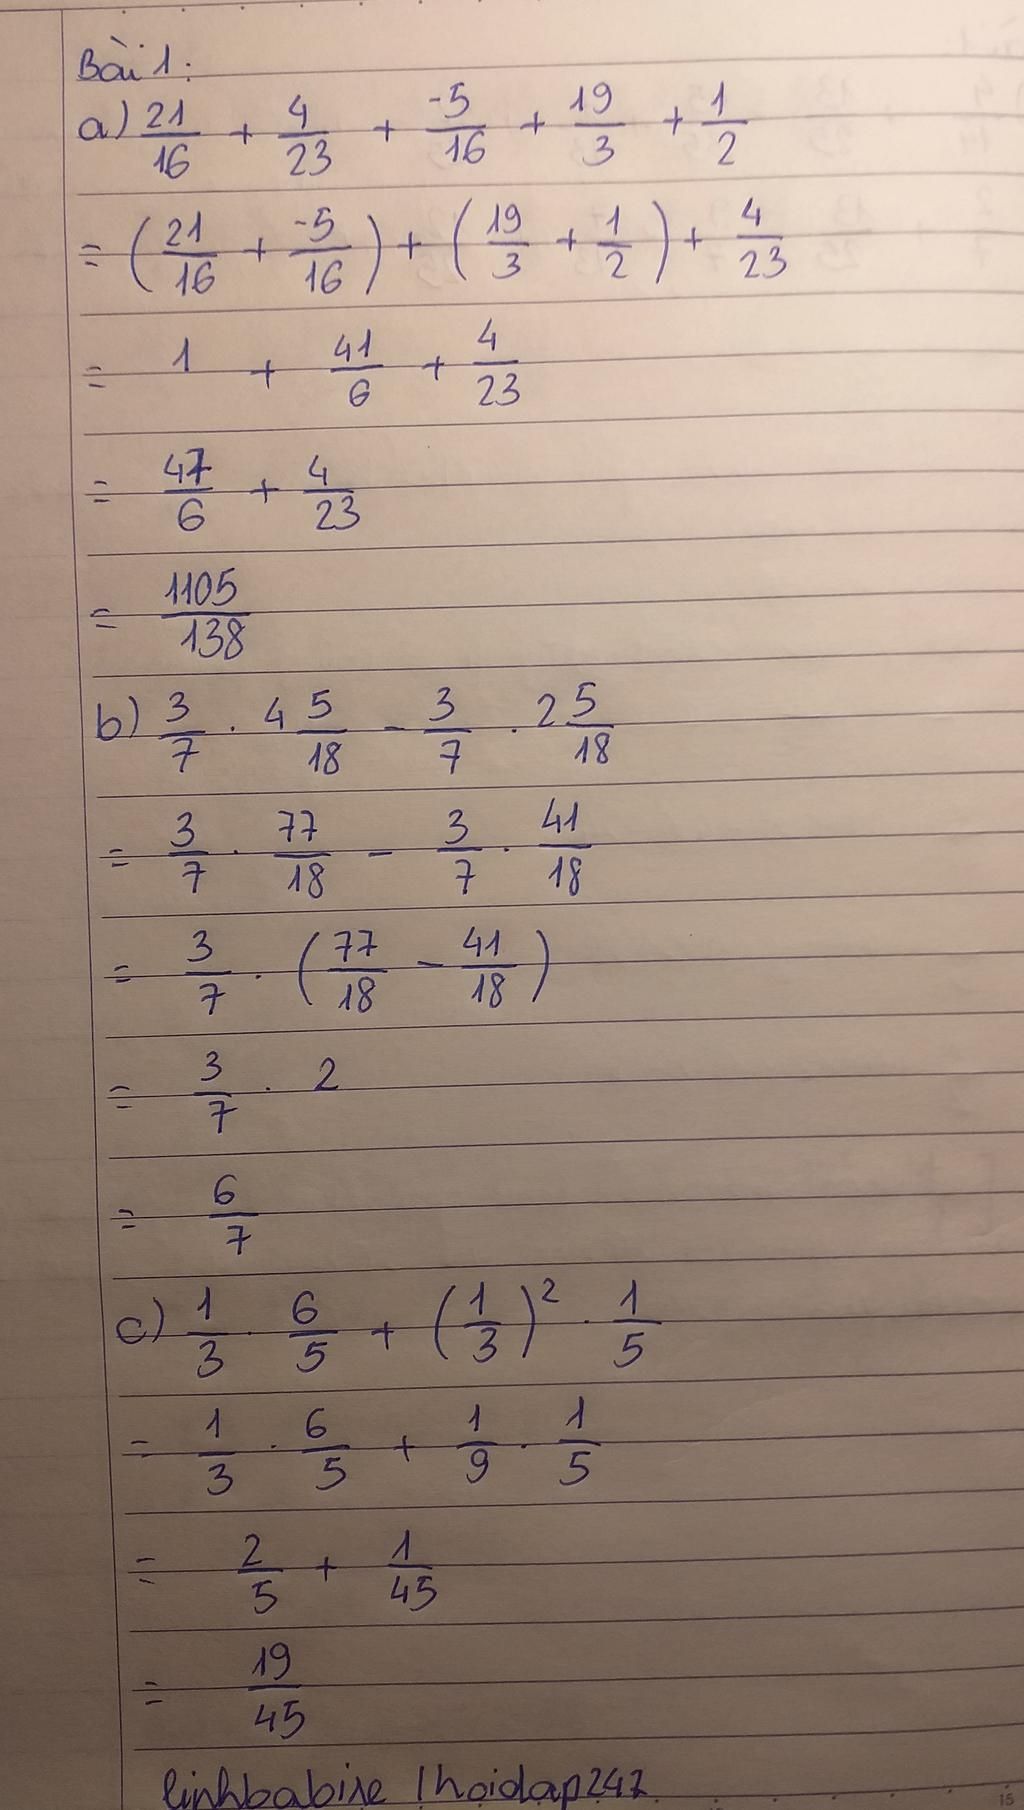 Bài 1:
a) 21/16 + 4/23 + -5/16 + 19/3 + 1/2
= (21/16 + -5/16) + (19/3 + 1/2) + 4/23
= 1 + 41/6 + 4/23
= 47/6 + 4/23
= 1105/138
b) 3/7 . 4 5/18 - 3/7 . 2 5/18
= 3/7 . 77/18 - 3/7 . 41/18
= 3/7 . (77/18 - 41/18)
= 3/7 . 2
= 6/7
c) 1/3 . 6/5 + (1/3)² . 1/5
= 1/3 . 6/5 + 1/9 . 1/5
= 2/5 + 1/45
= 19/45
linhbabine / hoidap247